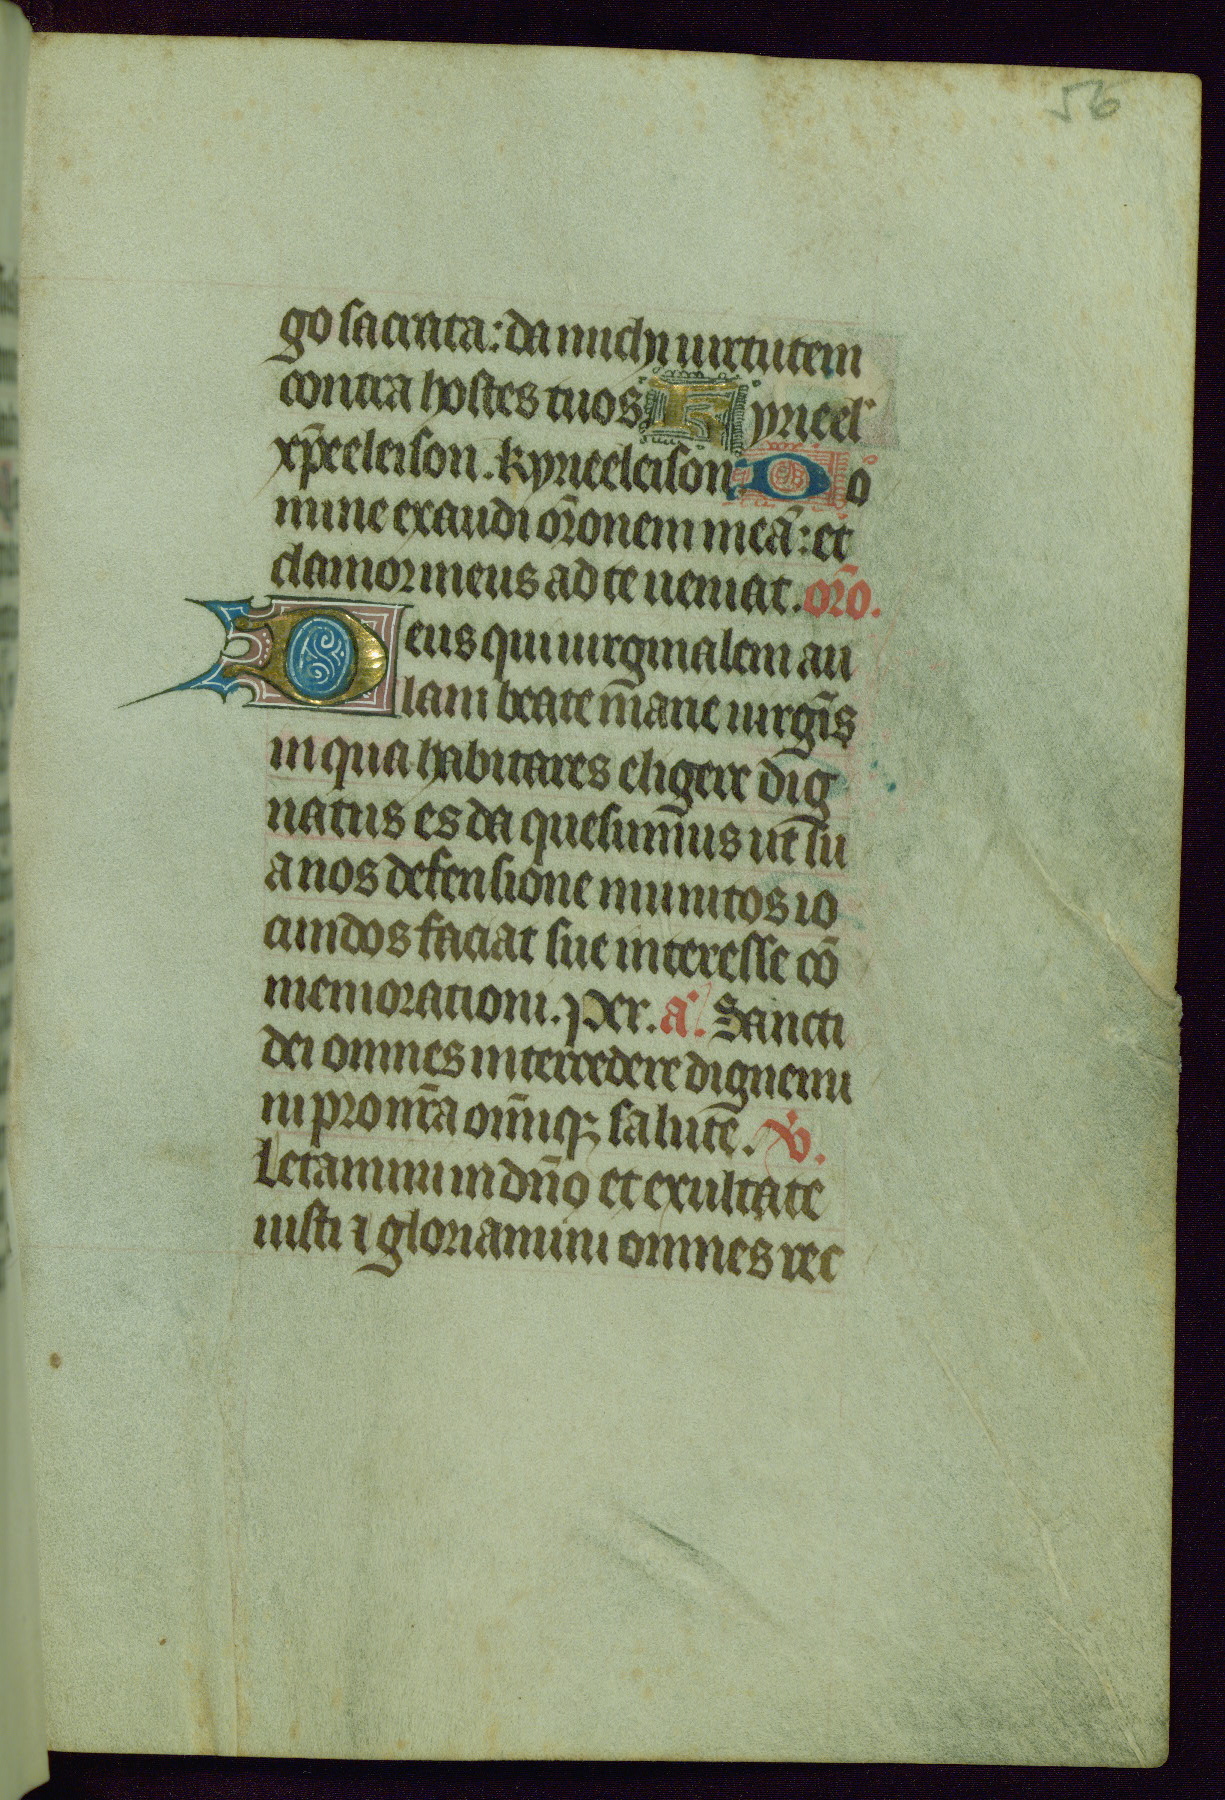 56
go sacrata: da michi uirtutem
contra hostes tuos Kyrieel'
xp̄eeleison. kyrieeleison Do
mine exaudi or̄onem meā: et
clamor meus ad te ueniat. or̄o.
Deus qui uirginalem au
lam beate m̄arie uirgīs
in qua habitares eligere dig
natus es da quesum̄us ut su
a nos defensione munitos io
cundos faciat sue interesse cō
memorationi. per. a'. Sancti
dei omnes intercedere dignemi
ni pro nr̄a om̄iqꝫ salutē. v̄.
Letamini in dn̄o et exultate
iusti ⁊ gloriamini omnes rec